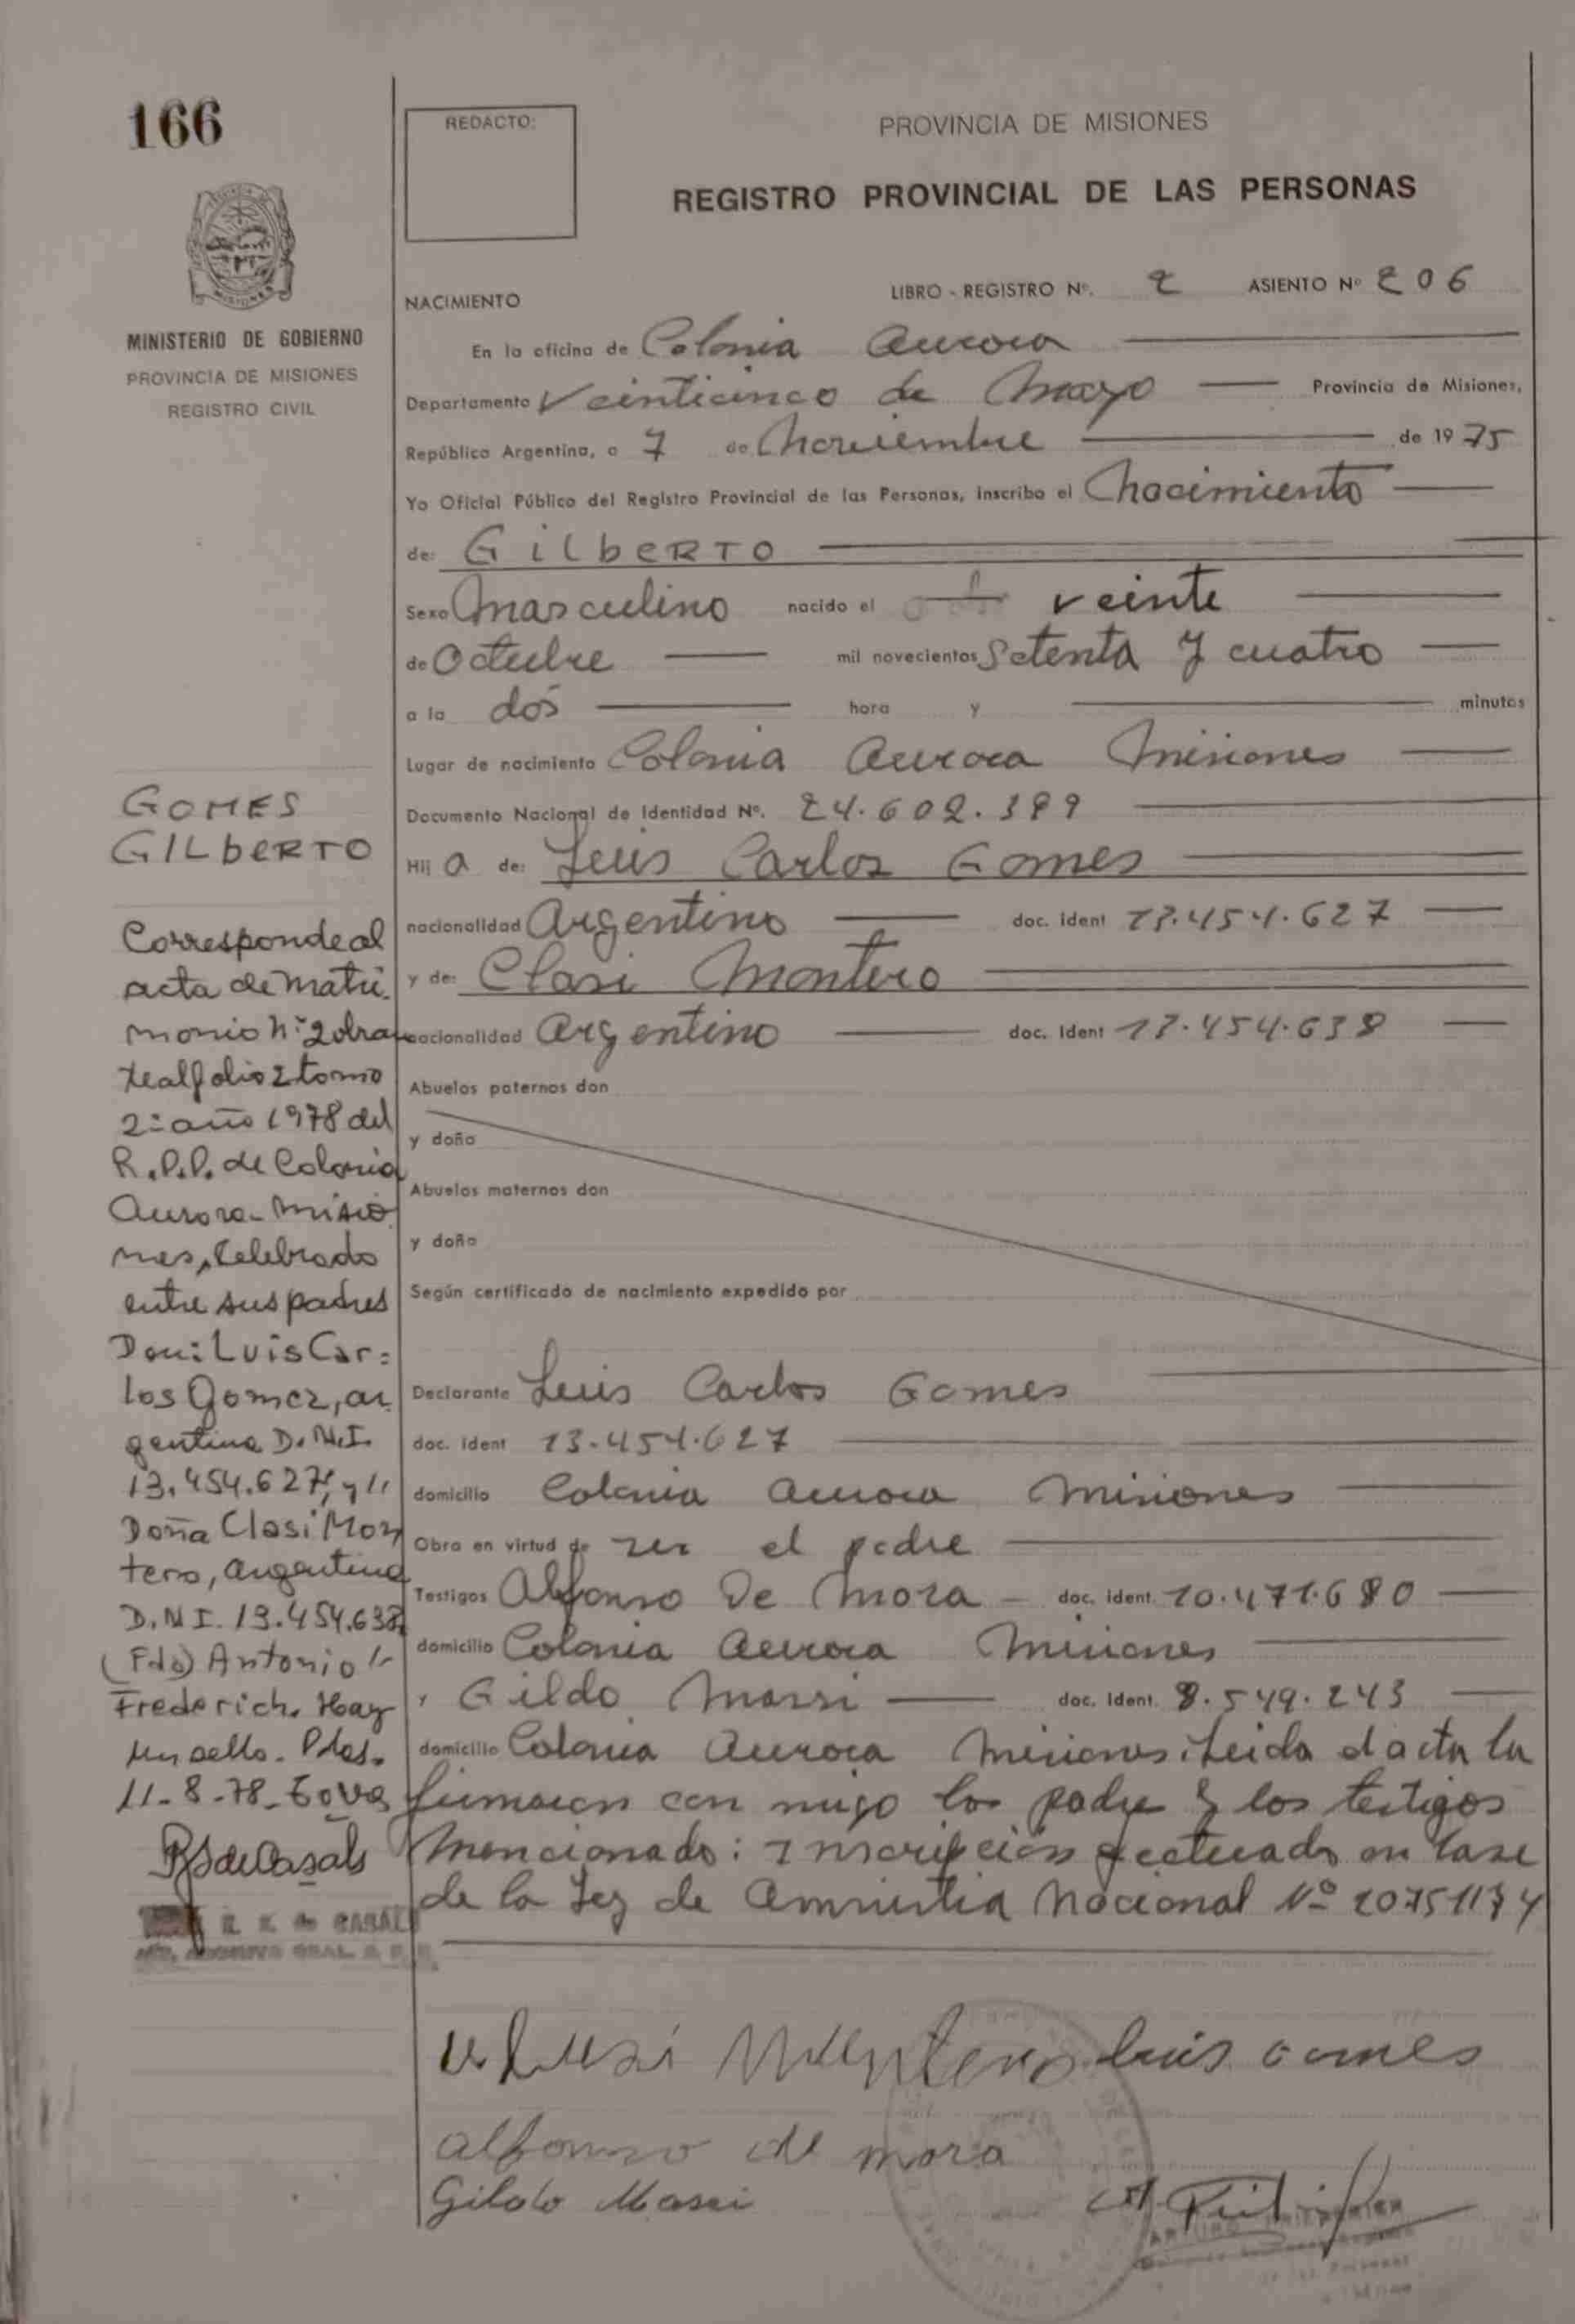 166
REDACTO:
PROVINCIA DE MISIONES
REGISTRO PROVINCIAL DE LAS PERSONAS
MINISTERIO DE GOBIERNO
PROVINCIA DE MISIONES
REGISTRO CIVIL
NACIMIENTO
LIBRO - REGISTRO Nº. 2 ASIENTO Nº 206
En la oficina de Colonia Aurora
Departamento Veinticinco de Mayo Provincia de Misiones,
República Argentina, a 7 de Noviembre de 1975
Yo Oficial Público del Registro Provincial de las Personas, inscribo el Nacimiento
de: GILbERTO
Sexo Masculino nacido el veinte
de Octubre mil novecientos Setenta y cuatro
a la dos hora y minutos
Lugar de nacimiento Colonia Aurora Misiones
Documento Nacional de Identidad Nº. 24.602.389
Hij a de: Luis Carlos Gomes
nacionalidad Argentino doc. ident 13.454.627
y de: Clasi Montero
nacionalidad Argentino doc. Ident 13.454.638
Abuelos paternos don
y doña
Abuelos maternos don
y doña
Según certificado de nacimiento expedido por
Declarante Luis Carlos Gomes
doc. ident 13.454.627
domicilio Colonia Aurora Misiones
Obra en virtud de ser el padre
Testigos Alfonso De Mora doc. ident. 10.471.680
domicilio Colonia Aurora Misiones
y Gildo Massi doc. Ident. 8.549.243
domicilio Colonia Aurora Misiones: Leida d acta la
firmaron con migo los padre y los testigos
Mencionado: Inscripción efectuado en base
de la Ley de Amnistia Nacional Nº 20751174
GOMES
GILbERTO
Corresponde al
acta de matri
monio Nº 2 obran
te al folio 2 tomo
2º año 1978 del
R.P.P. de Colonia
Aurora-Misio
nes, Celebrado
entre sus padres
Don: Luis Car=
los Gomez, ar
gentino D.N.I.
13.454.627, y
Doña Clasi Mon
tero, Argentina
D.N.I. 13.454.638
(Fdo) Antonio
Frederich. Hay
un sello. Pdas.
11-8-78-
RSdeCasals
R. S. de CASALS
Clusi Muntero Luis Gomes
alfonso de mora
Gildo Massi